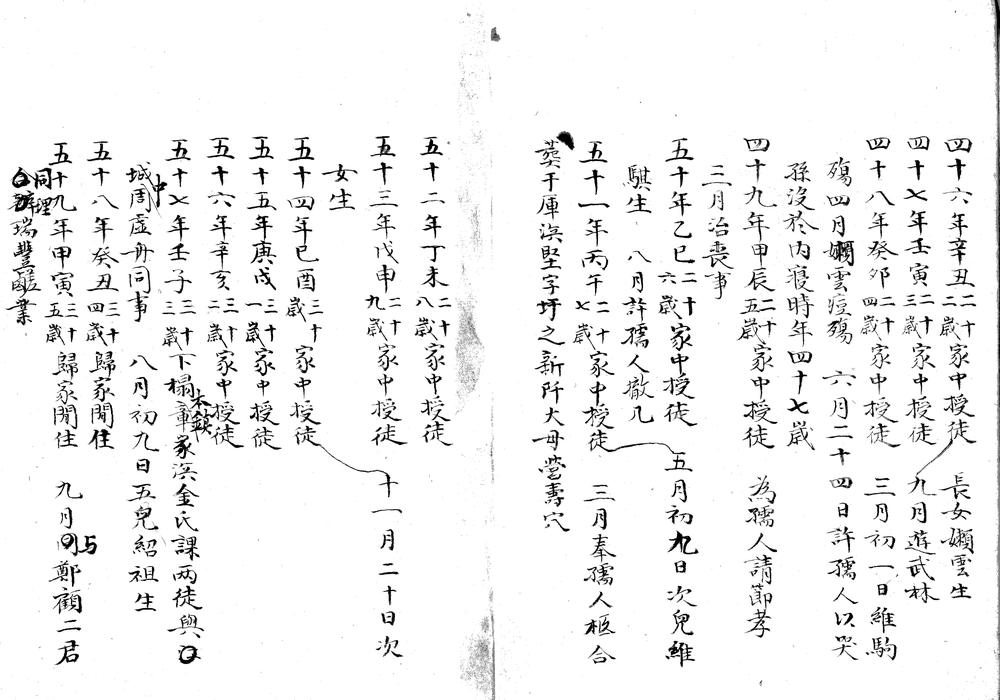 四十六年辛丑二十二歲家中授徒　長女嬾雲生
四十七年壬寅二十三歲家中授徒　九月遊武林
四十八年癸卯二十四歲家中授徒　三月初一日維駒
殤四月嬾雲痘殤　六月二十四日許孺人以哭
孫沒於內寢時年四十七歲
四十九年甲辰二十五歲家中授徒　為孺人請節孝
三月治喪事
五十年乙巳二十六歲家中授徒　五月初九日次兒維
騏生　八月許孺人撤几
五十一年丙午二十七歲家中授徒　三月奉孺人柩合
葬于厙浜堅字圩之新阡大母營壽穴
五十二年丁未二十八歲家中授徒
五十三年戊申二十九歲家中授徒　十一月二十日次
女生
五十四年己酉三十歲家中授徒
五十五年庚戌三十一歲家中授徒
五十六年辛亥三十二歲家中授徒
五十七年壬子三十三歲下榻本鎮章家浜金氏課兩徒與
城中周虛舟同事　八月初九日五兒紹祖生
五十八年癸丑三十四歲歸家閒住
五十九年甲寅三十五歲歸家閒住　九月與鄭顧二君
同理瑞豐醝業